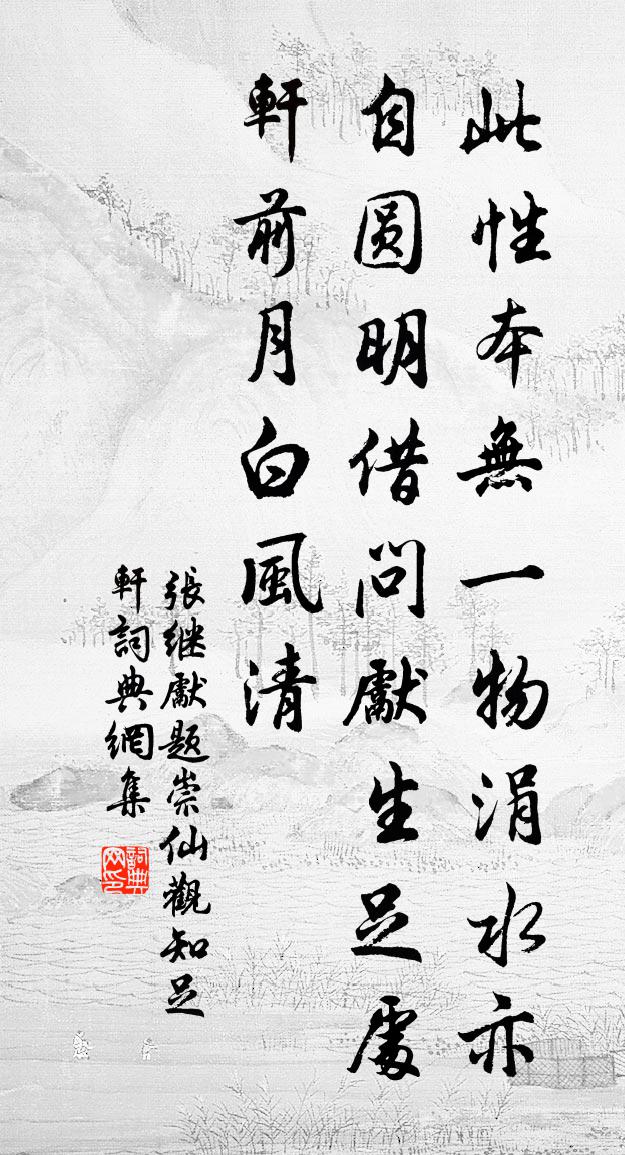 此性本無一物涓水亦
自圆明借问獻生足處
軒前月白風清
張继獻题崇仙觀知足
軒詞典網集
詞典
网印